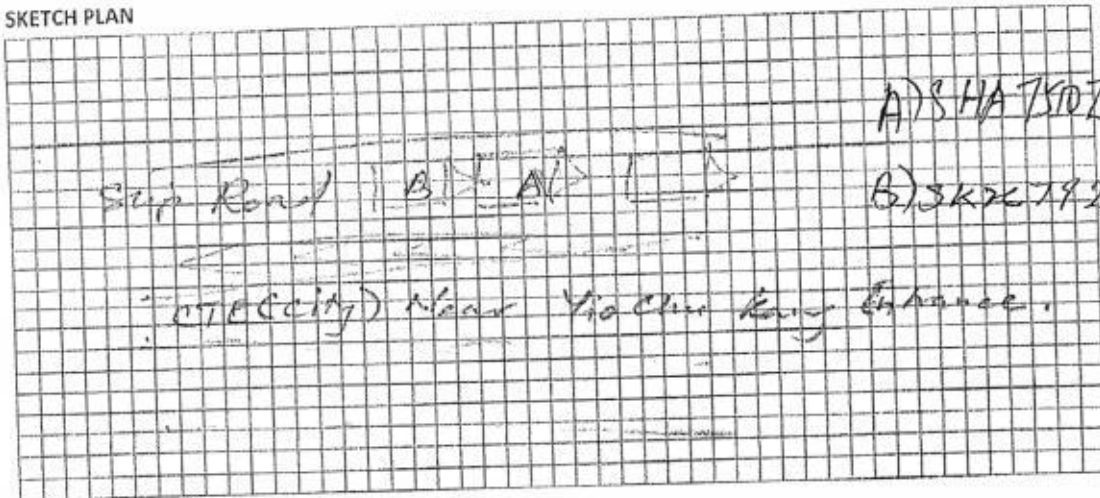 SKETCH PLAN
A) SHA 7510Z
Slip Road B A
B) SKX 792
CTE (City) Near Yio Chu Kang Entrance.